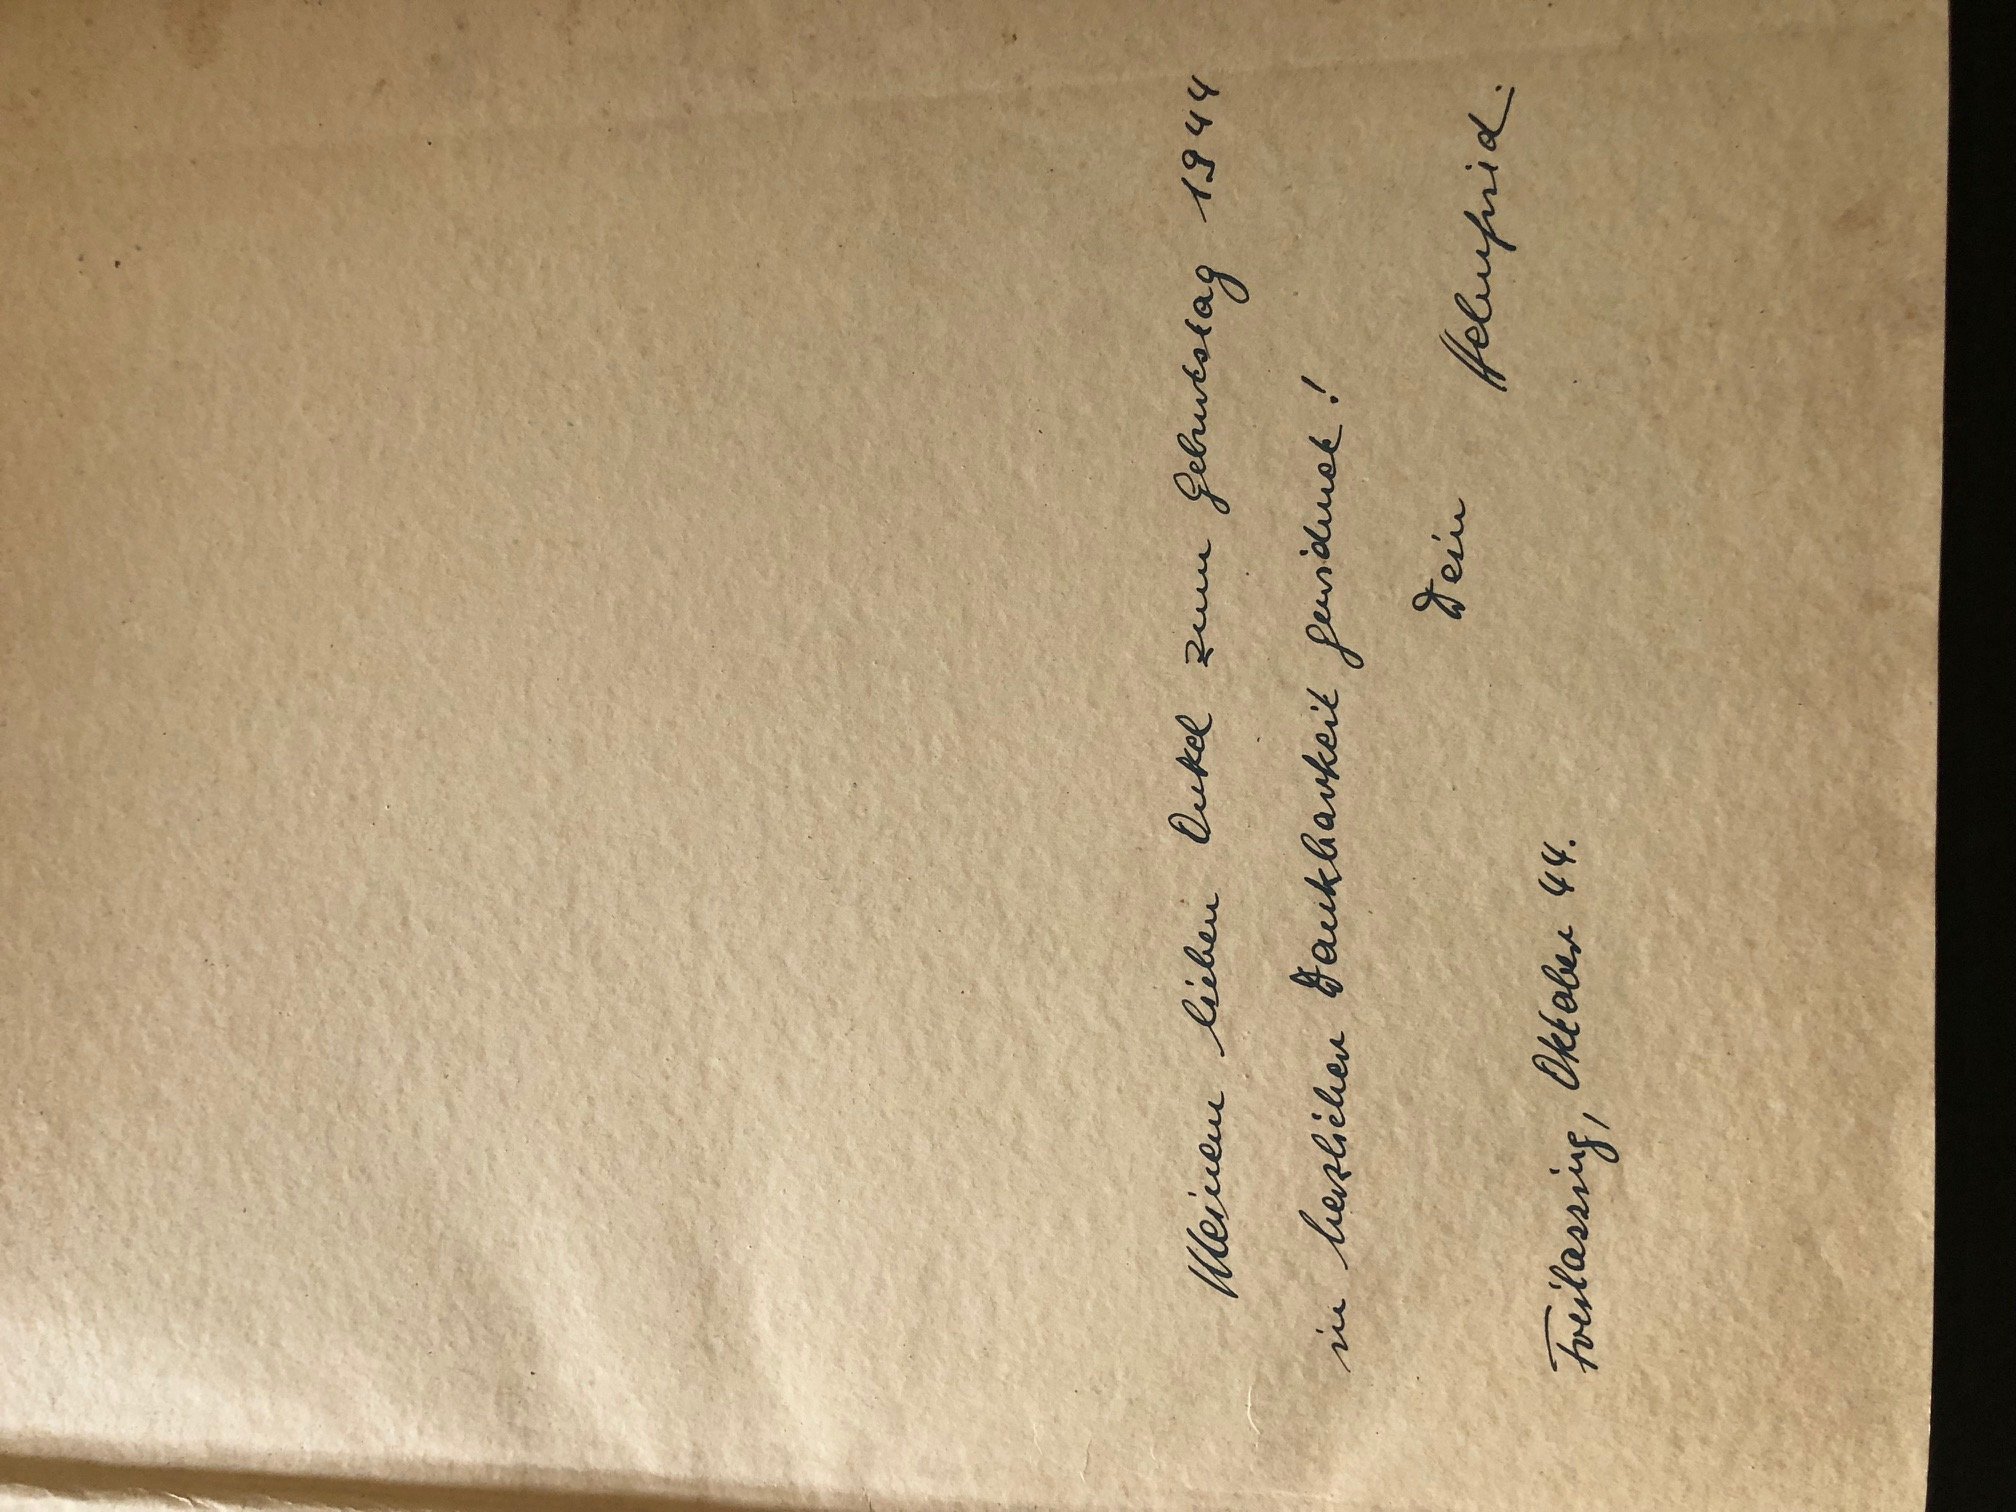 Meinen lieben Onkel zum Geburtstag 1944
in herzlicher Dankbarkeit gewidmet!
Dein Helmfrid.
Freilassing, Oktober 44.